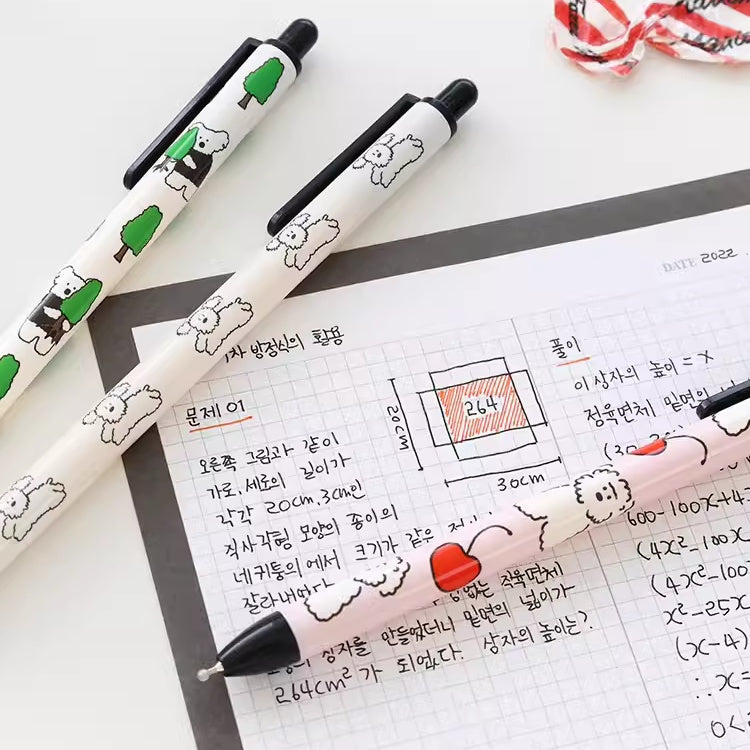 DATE 2022 .
차 방정식의 활용
문제 01
오른쪽 그림과 같이
가로, 세로의 길이가
각각 20cm, 3cm인
직사각형 모양의 종이의
네 귀퉁이에서 크기가 같은
잘라내었다
없는 직육면체
상자를 만들었더니 밑면의 넓이가
264cm²가 되었다. 상자의 높이는?
20cm
264
30cm
풀이
이 상자의 높이 = x
직육면체 밑면의
(30-
600-100x+4
(4x²-100x
(4x²-100
x²-25x
(x-4)
∴ x=
0<